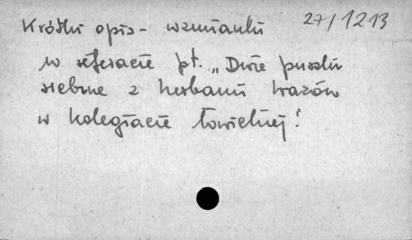 27/1213
Krótki opis - wzmianki
w referacie pt. „Dwie puszki
srebrne z herbami Wazów
w Kolegiacie Łowickiej."